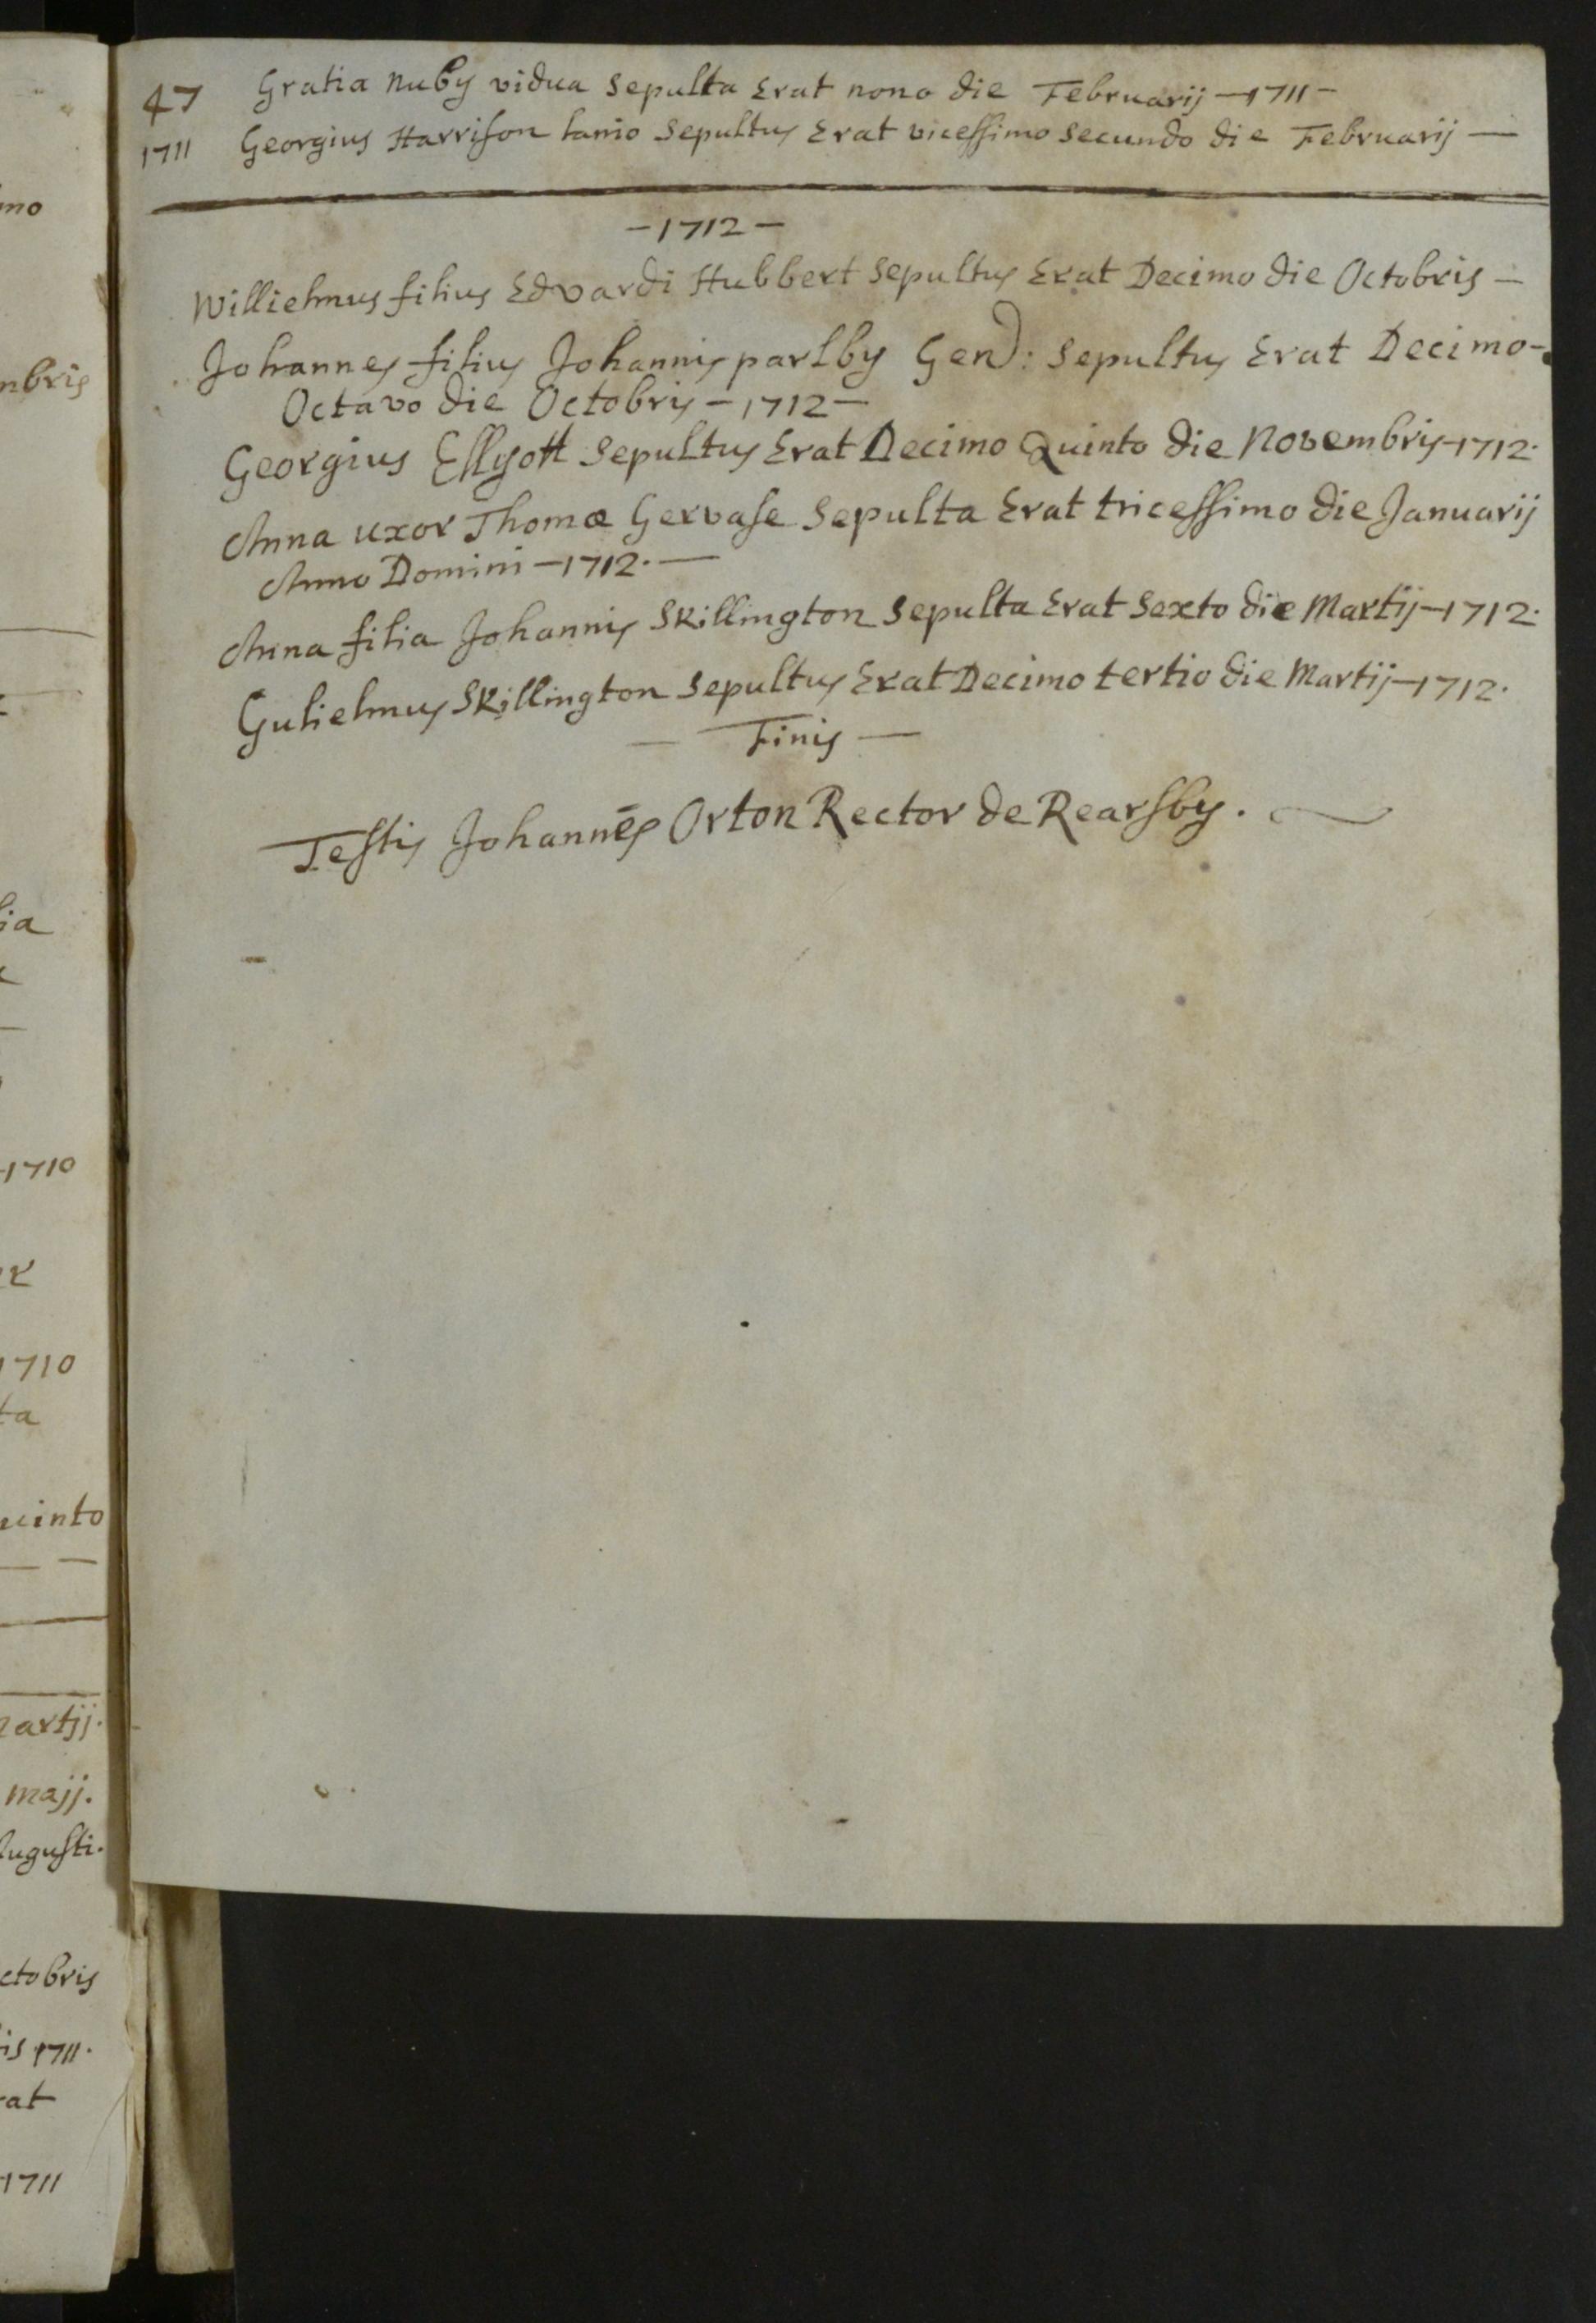 47 Gratia Nuby vidua Sepulta Erat nono die Februarij —1711—
1711 Georgius Harrison lanio Sepultus Erat vicessimo Secundo die Februarij —
—1712—
Willielmus filius Edvardi Hubbert Sepultus Erat Decimo die Octobris —
Johannes filius Johannis parlby Gen: Sepultus Erat Decimo-
Octavo die Octobris —1712—
Georgius Ellyott Sepultus Erat Decimo Quinto die Novembris—1712.
Anna uxor Thomæ Gervase Sepulta Erat tricessimo die Januarij
Anno Domini —1712.—
Anna filia Johannis Skillington Sepulta Erat Sexto die Martij—1712.
Gulielmus Skillington Sepultus Erat Decimo tertio die Martij—1712.
— Finis —
Testis Johannēs Orton Rector de Rearsby.
mo
mbris
lia
1710
1710
ta
uinto
artij.
majj.
Augusti.
ctobris
is 1711.
rat
1711